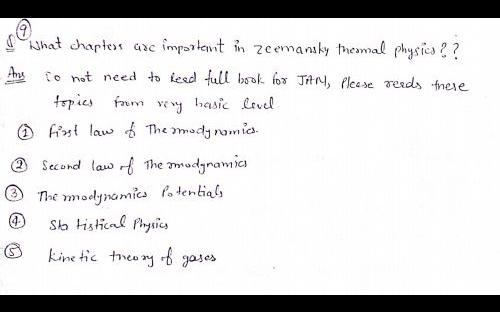 9
Q What chapters are important in Zeemansky thermal physics??
Ans So not need to read full book for JAM, Please reads these
topics from very basic level
① First law of Thermodynamics.
② Second law of Thermodynamics
③ Thermodynamics Potentials
④ Statistical Physics
⑤ kinetic theory of gases